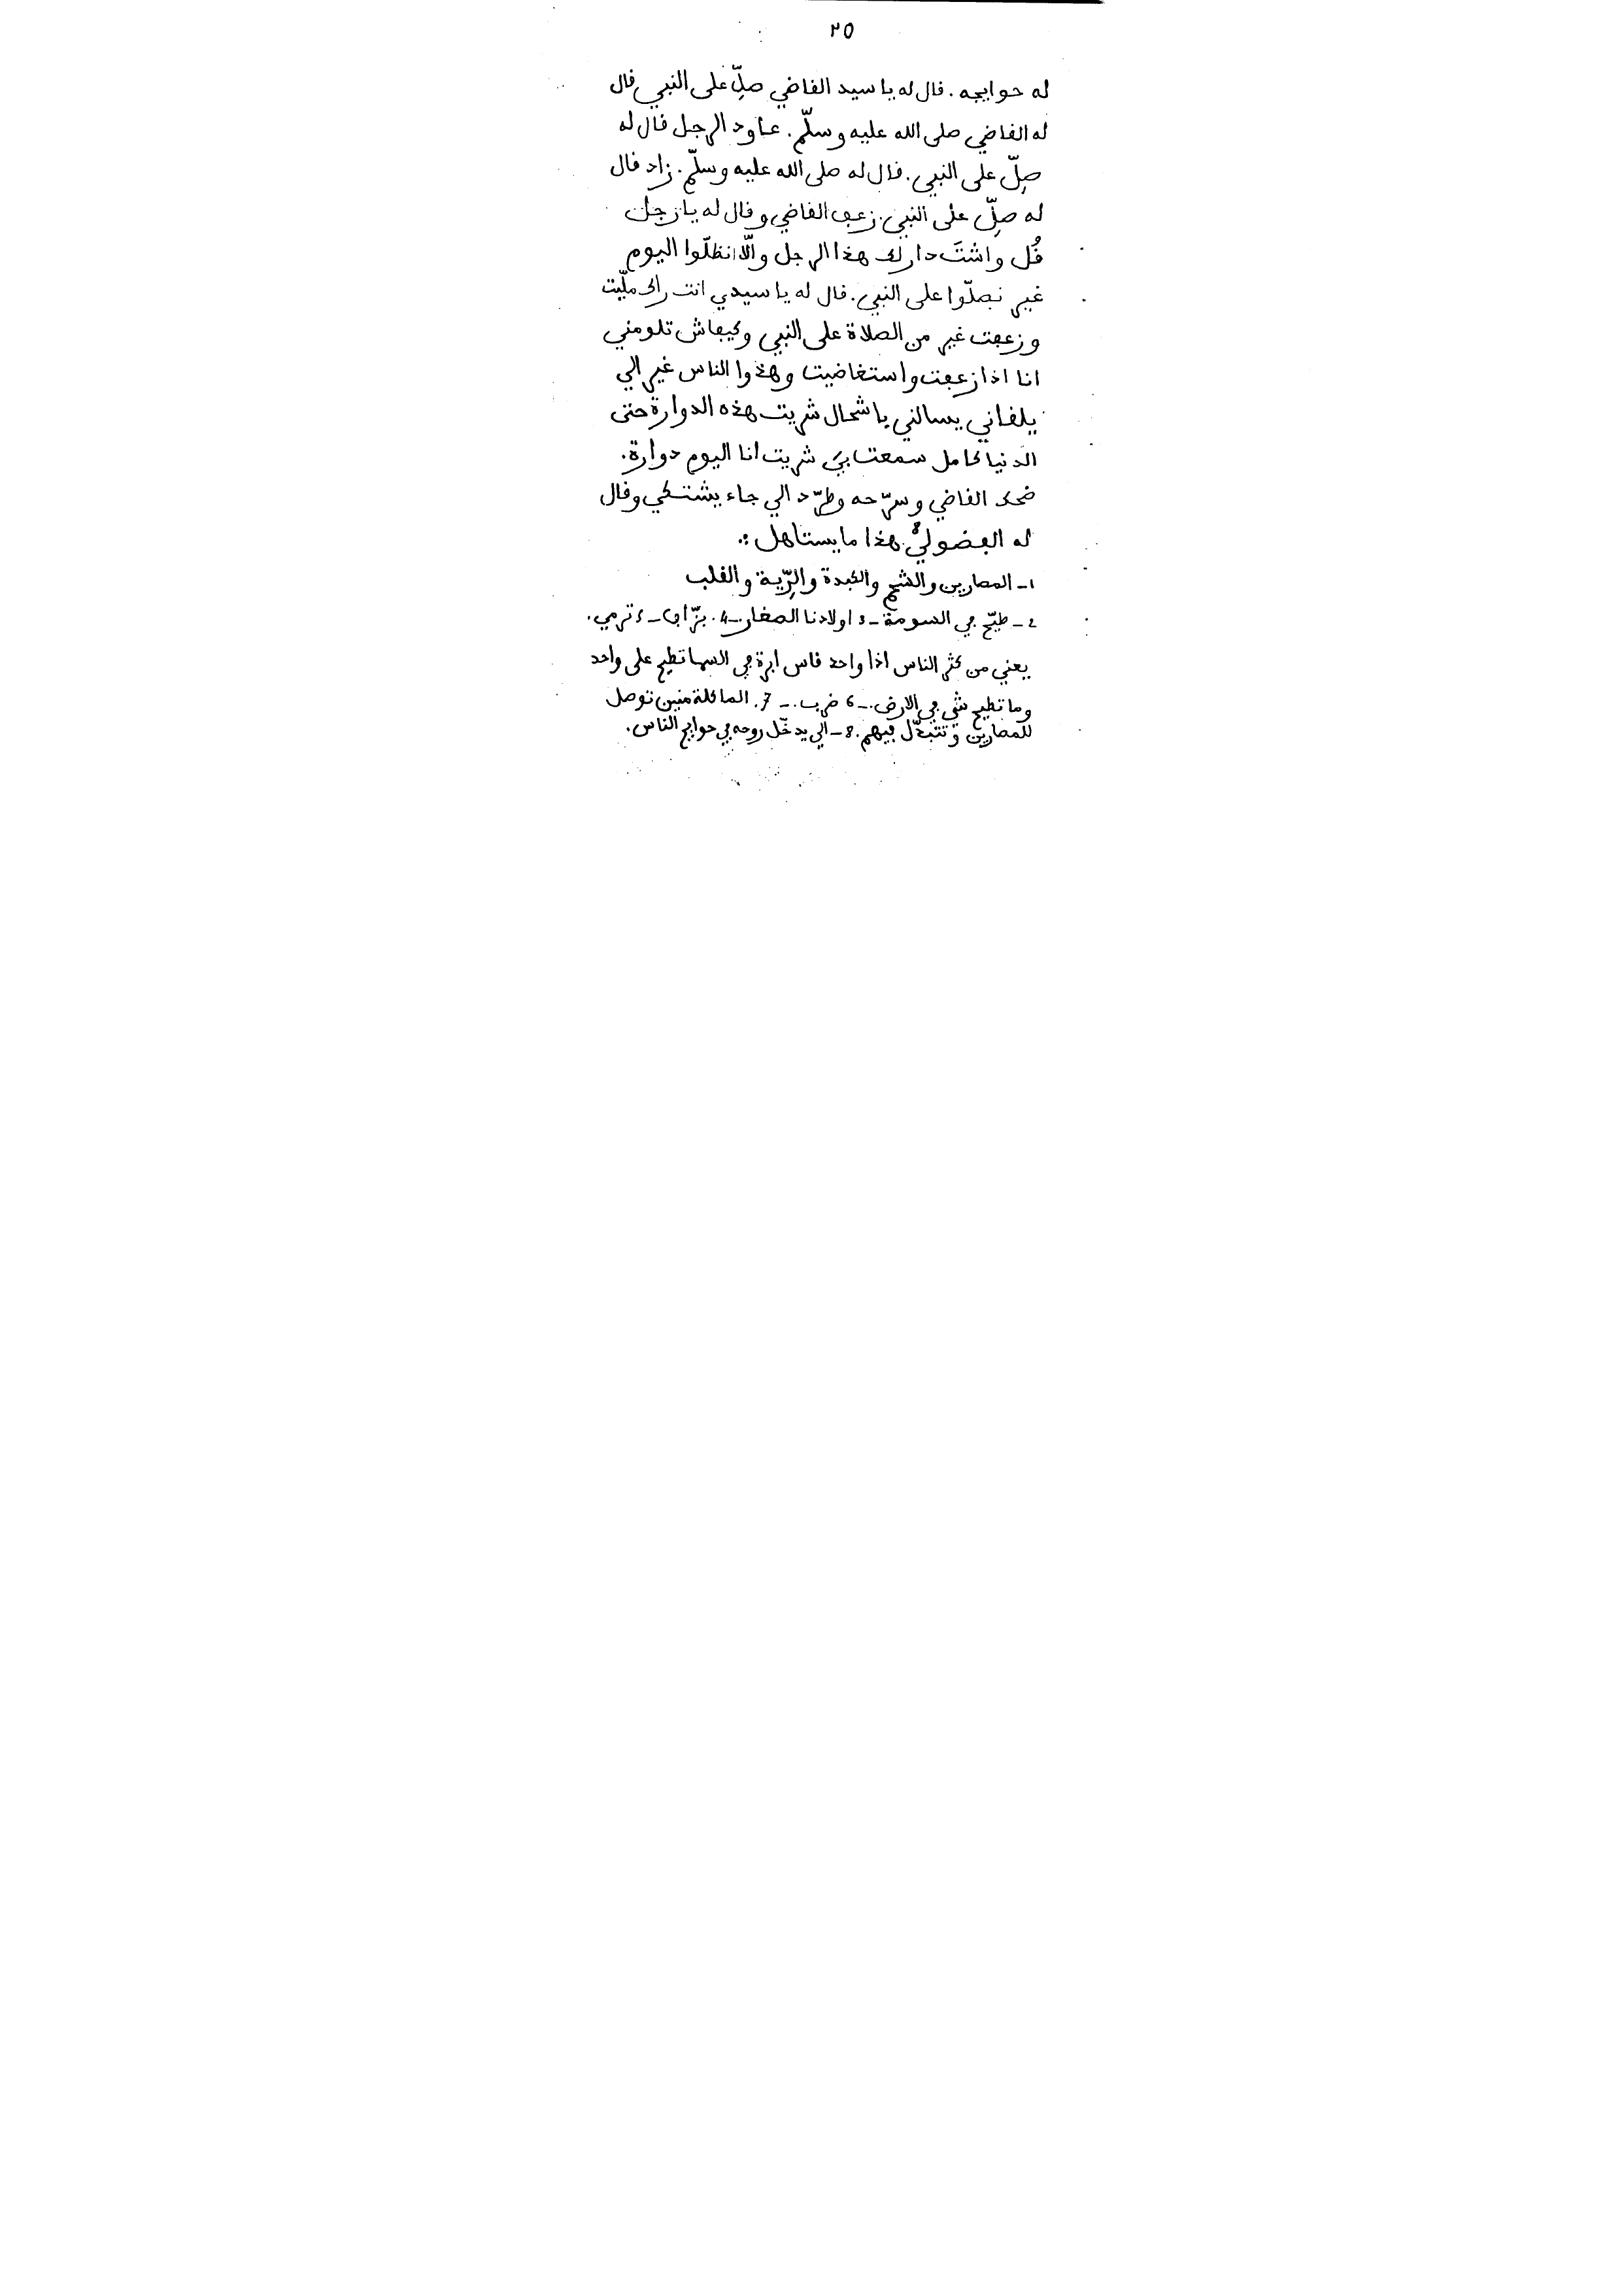 ٢٥
له حوايجه. قال له يا سيد القاضي صلِّ على النبي قال
له القاضي صلى الله عليه وسلّم. عاود الرجل قال له
صلِّ على النبي. قال له صلى الله عليه وسلّم. زاد قال
له صلِّ على النبي. زعف القاضي وقال له يا رجل
قُل واشتَ دارلك هذا الرجل والّا انظلّوا اليوم
غير نصلّوا على النبي. قال له يا سيدي انت راك ملّيت
وزعفت غير من الصلاة على النبي وكيفاش تلومني
انا اذا زعفت واستغاضيت وهذوا الناس غير الي
يلقاني يسالني باشحال شريت هذه الدوارة حتى
الدنيا كامل سمعت بيَ شريت انا اليوم دوارة.
ضحك القاضي وسرّحه وطرّد الي جاء يشتكي وقال
له الفضولي8 هذا ما يستاهل :.
1 - المصارين والشحم والكبدة والرِّية والقلب
2 - طيّح في السومة - 3 اولادنا الصغار - 4. بزّاف - 5 ترمي.
يعني من كثر الناس اذا واحد قاس ابرة في السما تطيح على واحد
وما تطيح شي في الارض. - 6 ضرب. - 7. الماكلة منين توصل
للمصارين وتتبدّل فيهم. 8 - الي يدخّل روحه في حوايج الناس.